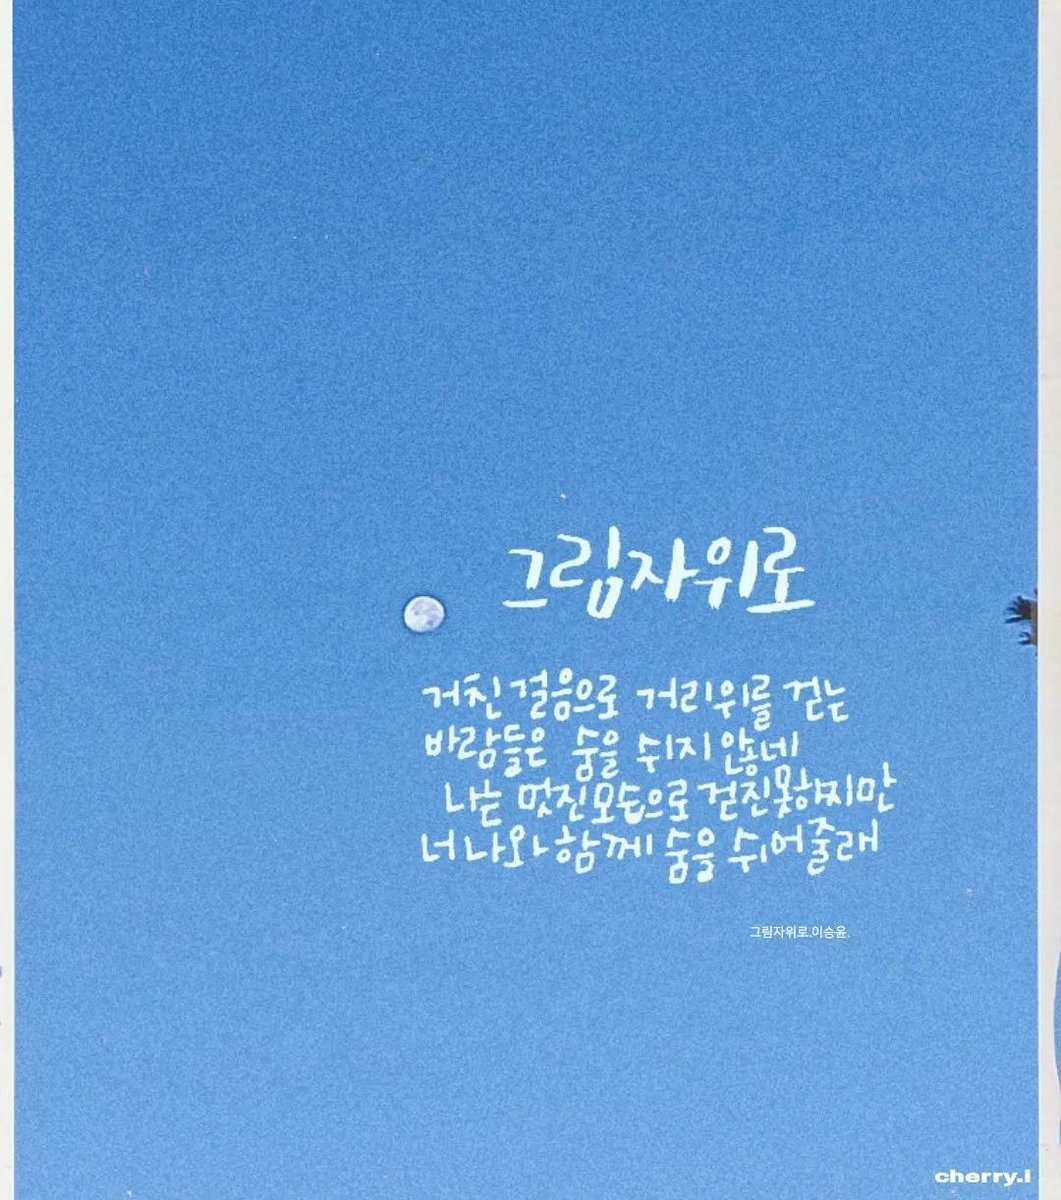 그림자위로
거친 걸음으로 거리위를 걷는
바람들은 숨을 쉬지 않네
나는 멋진모습으로 걷진못하지만
너 나와 함께 숨을 쉬어줄래
그림자위로.이승윤.
cherry.l